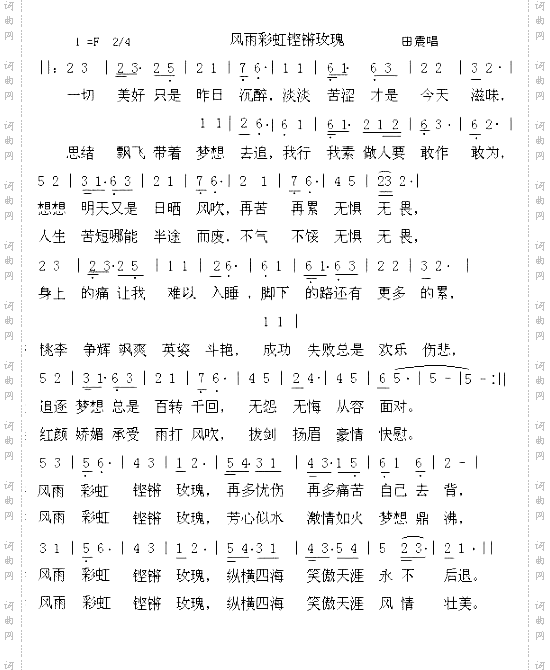 风雨彩虹铿锵玫瑰
1 =F 2/4 田震唱
||: 2 3 | 2 3· 2 5 | 2 1 | 7 6· | 1 1 | 6 1· 6 3 | 2 2 | 3 2· |
一切 美好 只是 昨日 沉醉, 淡淡 苦涩 才是 今天 滋味,
1 1 | 2 6· | 6 1 | 6 1· 2 1 2 | 6 3· | 6 2· |
思绪 飘飞 带着 梦想 去追, 我行 我素 做人要 敢作 敢为,
5 2 | 3 1· 6 3 | 2 1 | 7 6· | 2 1 | 7 6· | 4 5 | 23 2· |
想想 明天又是 日晒 风吹, 再苦 再累 无惧 无畏,
人生 苦短哪能 半途 而废, 不气 不馁 无惧 无畏,
2 3 | 2 3· 2 5 | 1 1 | 2 6· | 6 1 | 6 1· 6 3 | 2 2 | 3 2· |
身上 的痛 让我 难以 入睡, 脚下 的路还有 更多 的累,
1 1 |
桃李 争辉 飒爽 英姿 斗艳, 成功 失败总是 欢乐 伤悲,
5 2 | 3 1· 6 3 | 2 1 | 7 6· | 4 5 | 2 4· | 4 5 | 6 5· | 5 - | 5 - :||
追逐 梦想 总是 百转 千回, 无怨 无悔 从容 面对。
红颜 娇媚 承受 雨打 风吹, 拔剑 扬眉 豪情 快慰。
5 3 | 5 6· | 4 3 | 1 2· | 5 4· 3 1 | 4 3· 1 5 | 6 1 6 | 2 - |
风雨 彩虹 铿锵 玫瑰, 再多忧伤 再多痛苦 自己 去 背,
风雨 彩虹 铿锵 玫瑰, 芳心似水 激情如火 梦想 鼎 沸,
3 1 | 5 6· | 4 3 | 1 2· | 5 4· 3 1 | 4 3· 5 4 | 5 2 3· | 2 1· ||
风雨 彩虹 铿锵 玫瑰, 纵横四海 笑傲天涯 永 不 后退。
风雨 彩虹 铿锵 玫瑰, 纵横四海 笑傲天涯 风 情 壮美。
词曲网
词曲网
词曲网
词曲网
词曲网
词曲网
词曲网
词曲网
词曲网
词曲网
词曲网
词曲网